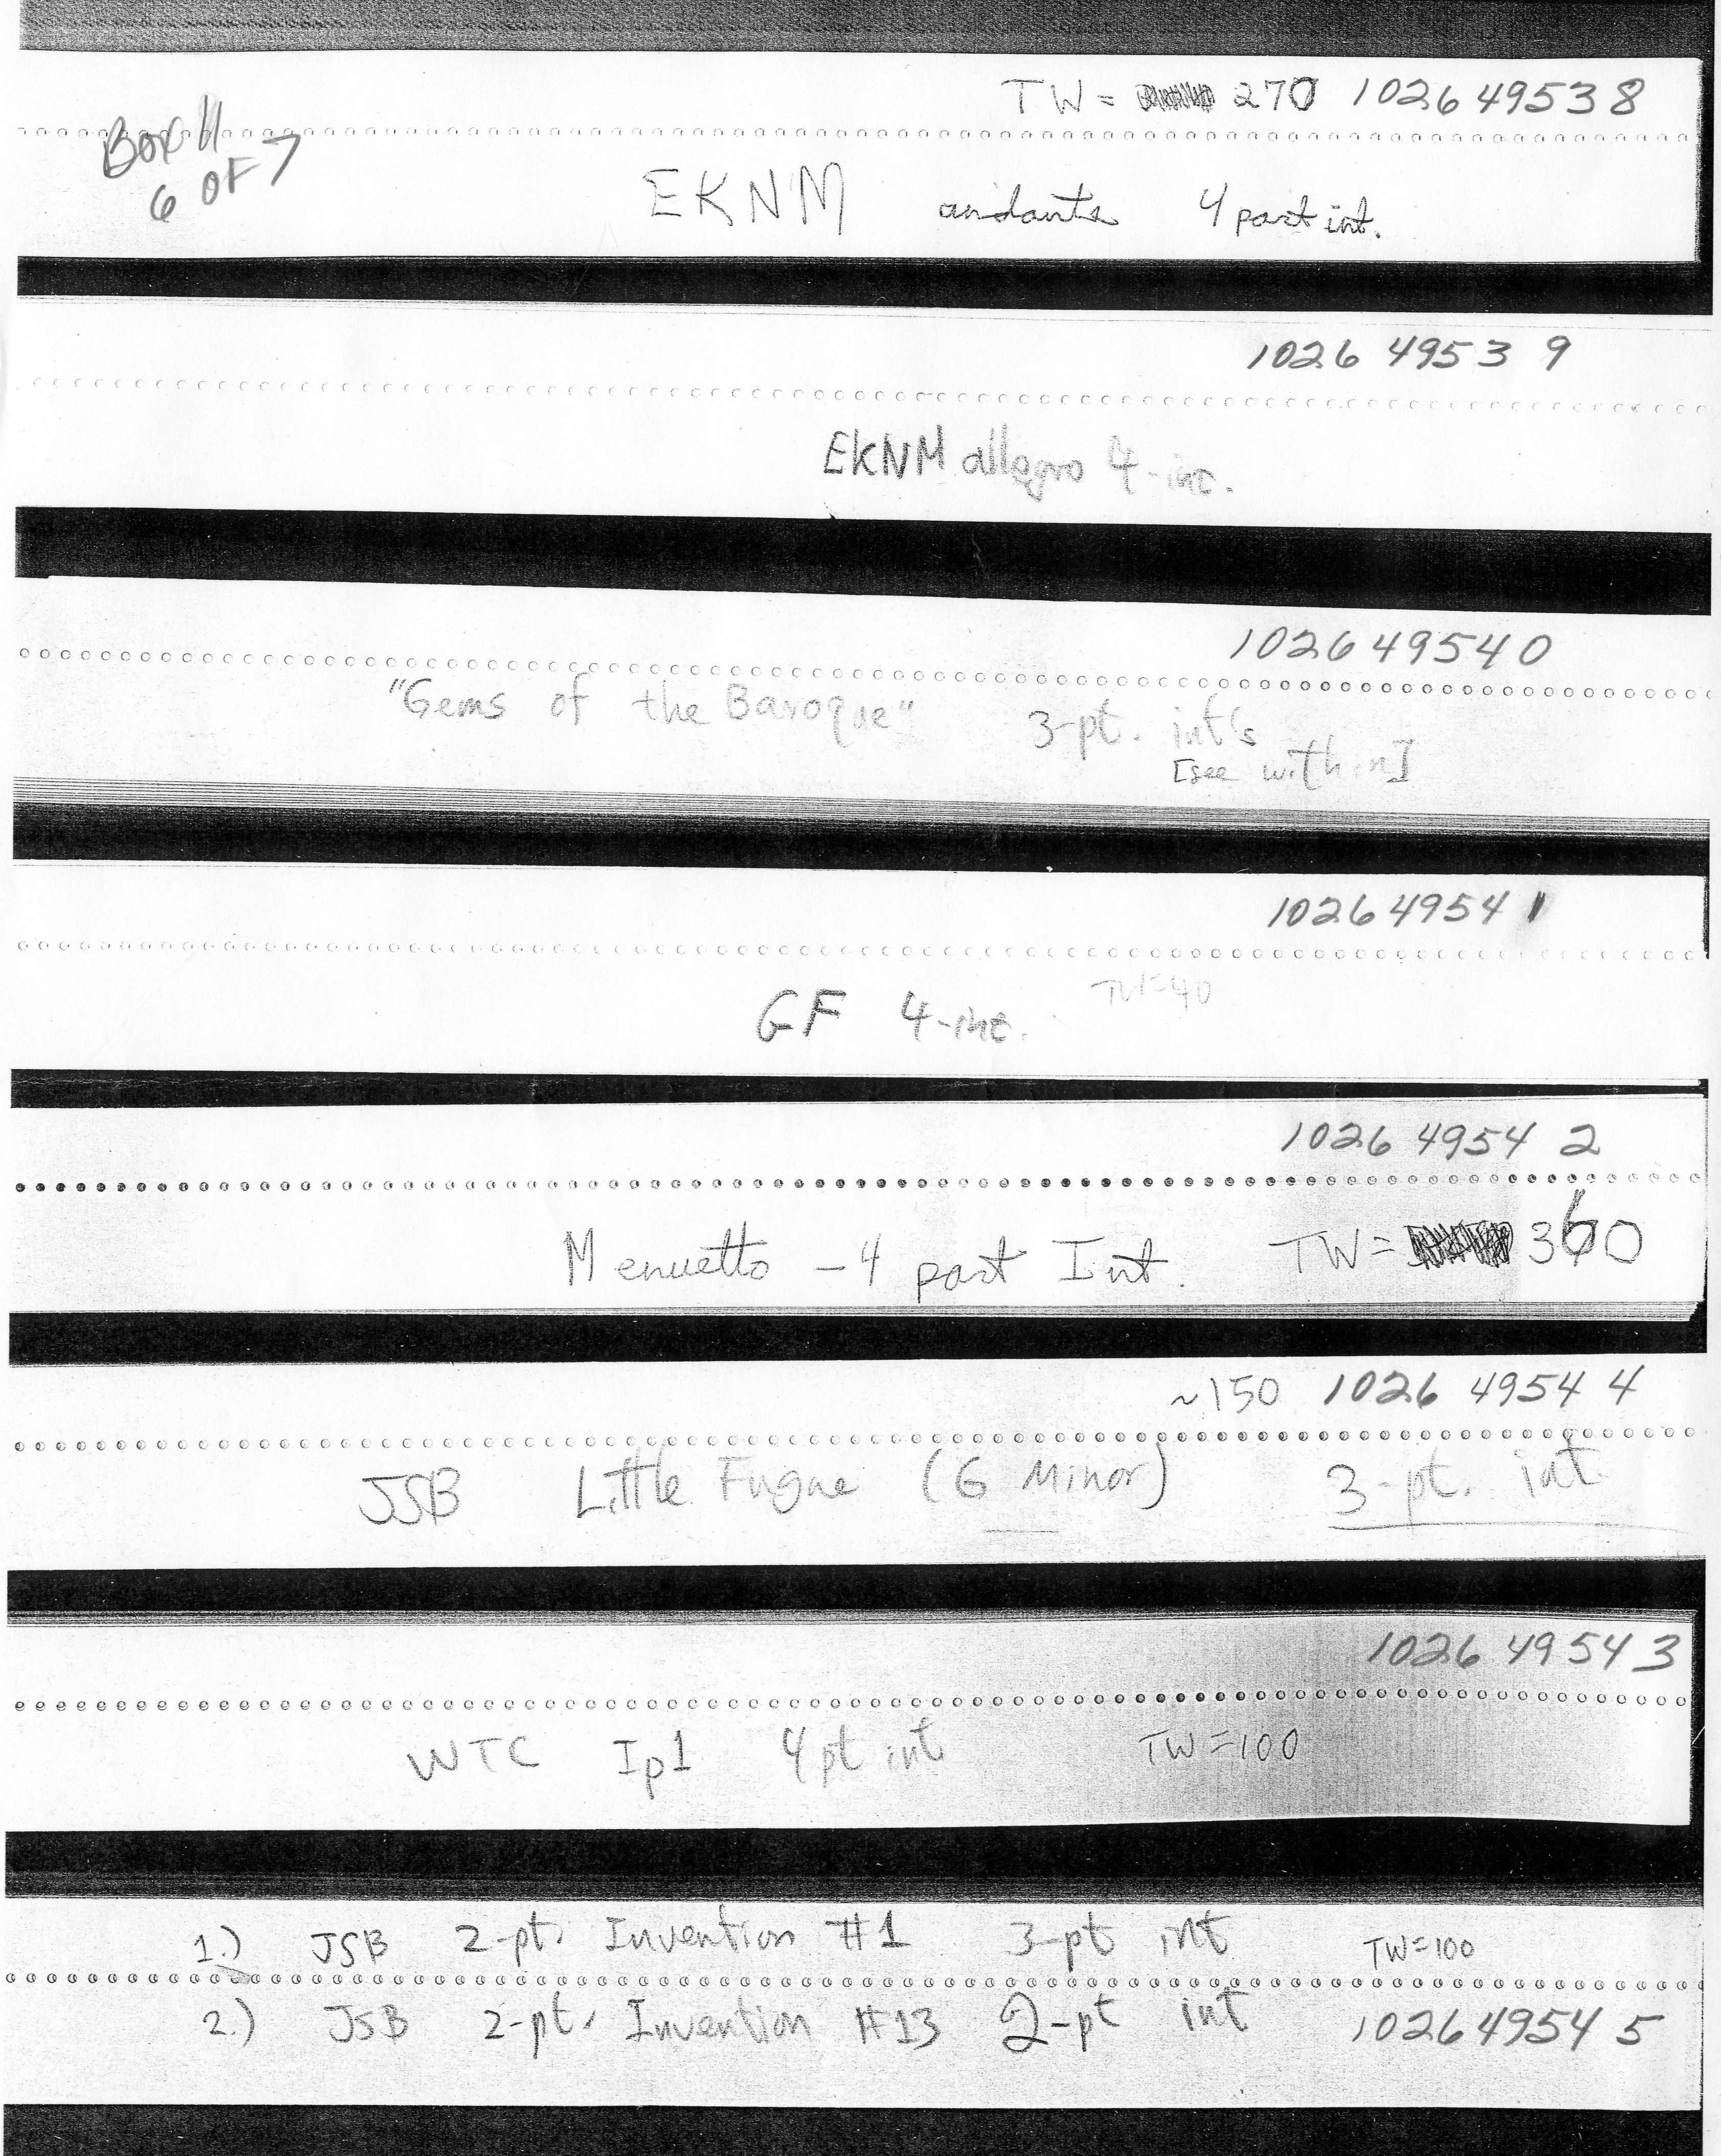 TW = 270 102649538
BOX 11
6 OF 7
EKNM andante 4 part int.
1026 4953 9
EKNM allegro 4-int.
102649540
"Gems of the Baroque" 3-pt. int's
[see within]
10264954 1
TW=40
GF 4-int.
1026 4954 2
Menuetto - 4 part Int. TW= 360
~150 1026 4954 4
JSB Little Fugue (G Minor) 3-pt. int.
1026 49 54 3
WTC Ip1 4 pt int TW=100
1.) JSB 2-pt. Invention #1 3-pt int TW=100
2.) JSB 2-pt. Invention #13 2-pt int 10264954 5